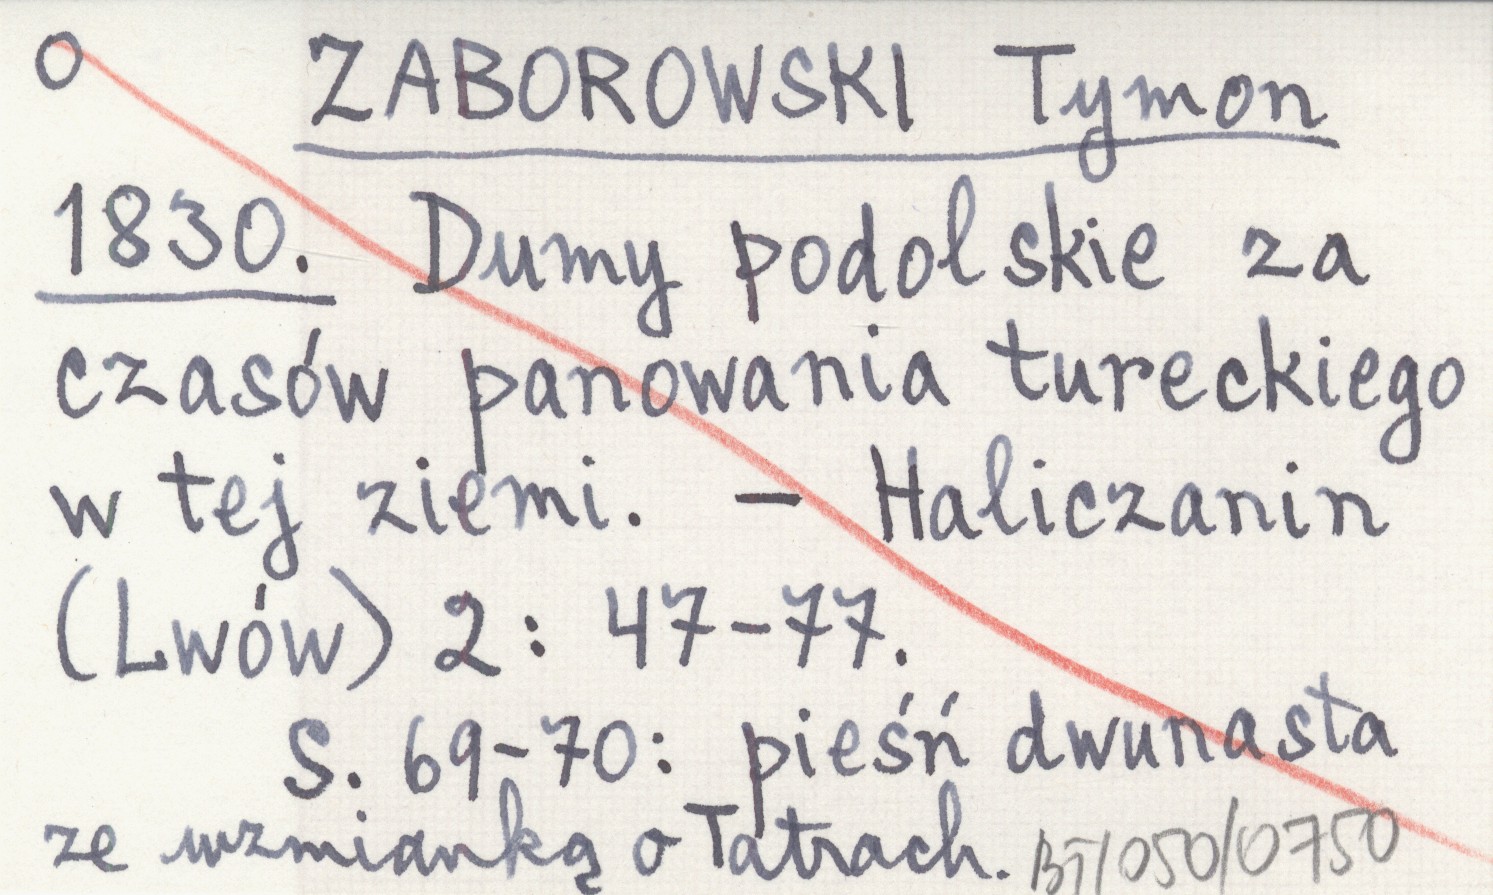 O ZABOROWSKI Tymon
1830. Dumy podolskie za
czasów panowania tureckiego
w tej ziemi. – Haliczanin
(Lwów) 2: 47–77.
S. 69–70: pieśń dwunasta
ze wzmianką o Tatrach. BT/050/0750